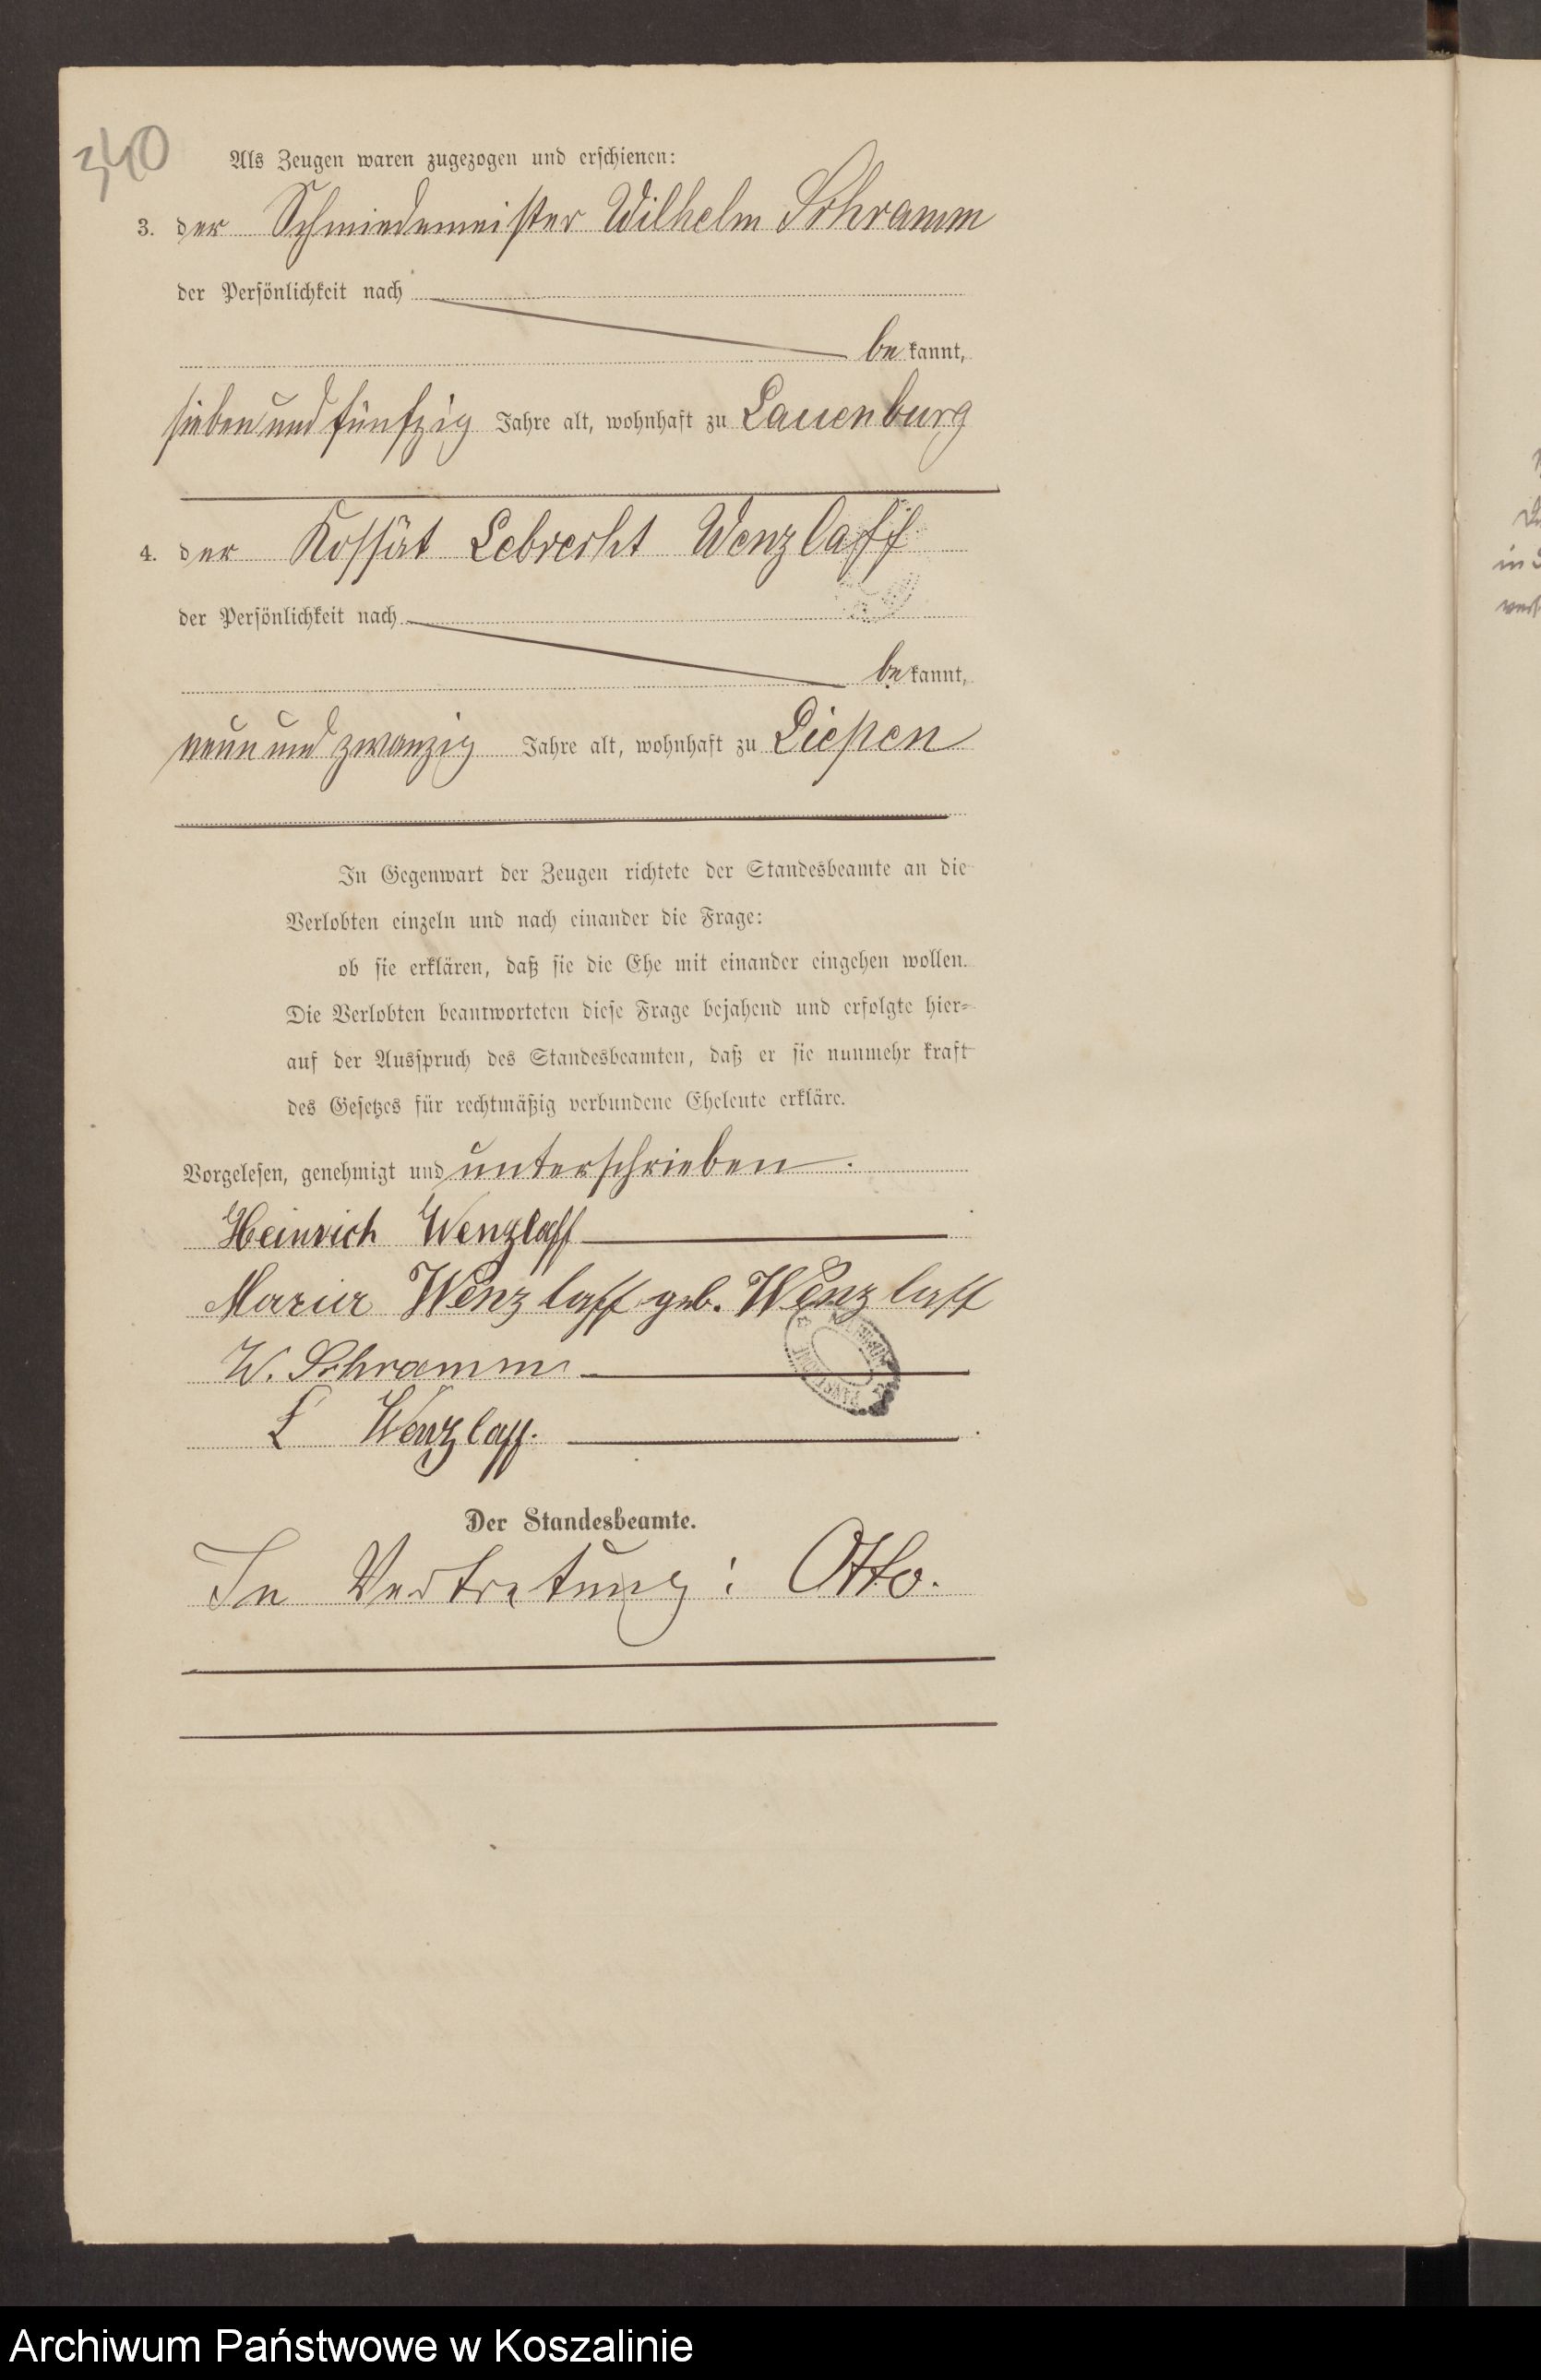 340
Als Zeugen waren zugezogen und erschienen:
3. der Schmiedemeister Wilhelm Schramm
der Persönlichkeit nach
be kannt,
sieben und fünfzig Jahre alt, wohnhaft zu Lauenburg
4. der Kossät Lebrecht Wenzlaff
der Persönlichkeit nach
be kannt,
neun und zwanzig Jahre alt, wohnhaft zu Liepen
In Gegenwart der Zeugen richtete der Standesbeamte an die
Verlobten einzeln und nach einander die Frage:
ob sie erklären, daß sie die Ehe mit einander eingehen wollen.
Die Verlobten beantworteten diese Frage bejahend und erfolgte hier=
auf der Ausspruch des Standesbeamten, daß er sie nunmehr kraft
des Gesetzes für rechtmäßig verbundene Eheleute erkläre.
Vorgelesen, genehmigt und unterschrieben.
Heinrich Wenzlaff
Maria Wenzlaff geb. Wenzlaff
W. Schramm
L Wenzlaff.
Der Standesbeamte.
In Vertretung: Otto.
Archiwum Państwowe w Koszalinie